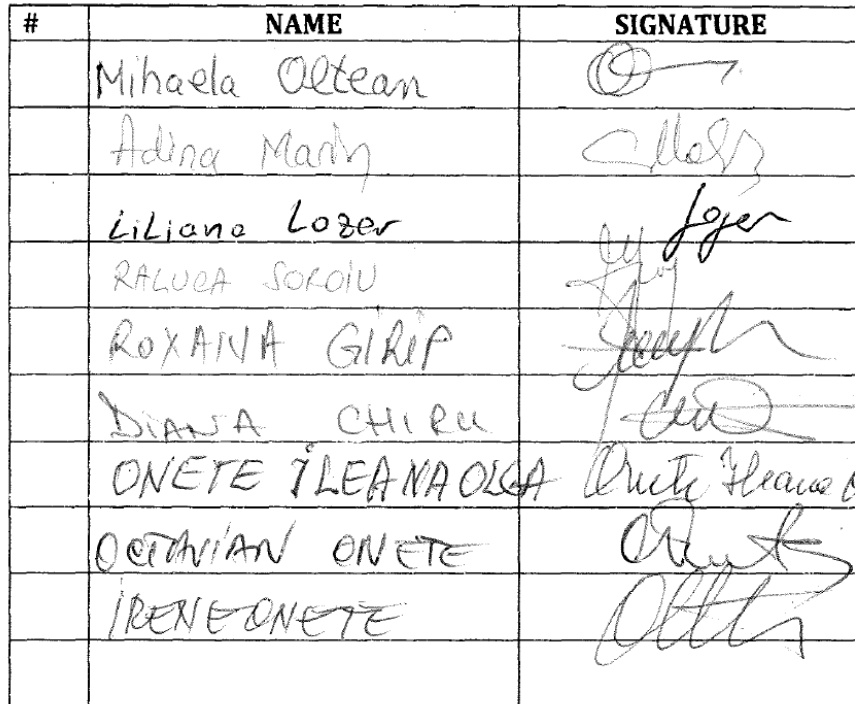 # NAME SIGNATURE
Mihaela Oltean
Adina Marin
Liliana Lozer Lozer
RALUCA SOROIU
ROXANA GIRIP
DIANA CHIRU
ONETE ILEANA OLGA Onete Ileana O
OCTAVIAN ONETE
IRENE ONETE